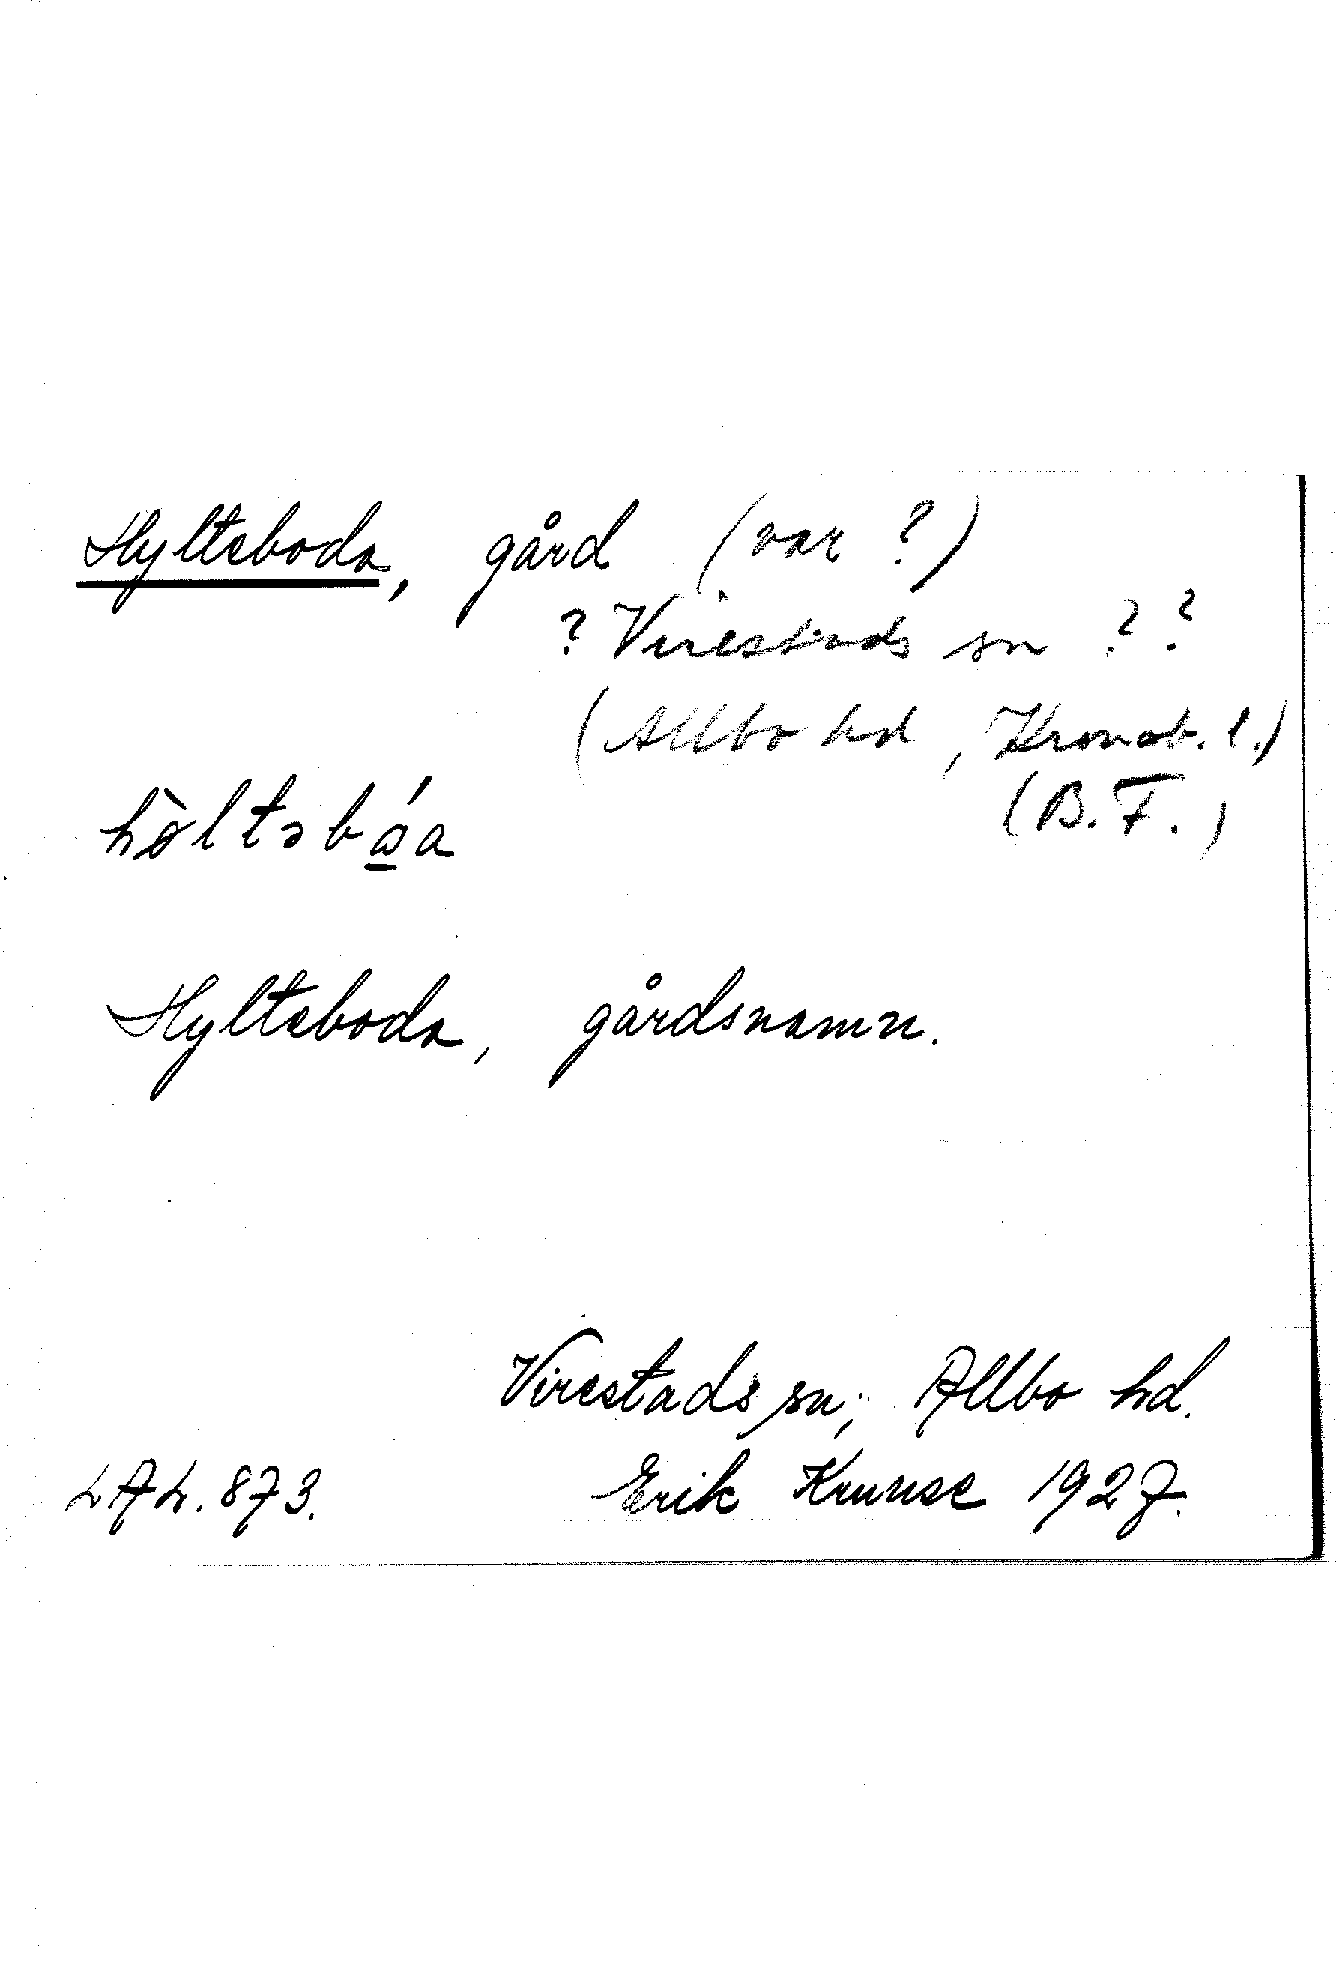 Hylteboda, gård (var ?)
? Virestads sn ? ?
(Allbo hd, Kronob. l.)
(B. F.)
hὸltəbá̱a
Hylteboda, gårdsnamn.
Virestads sn, Allbo hd.
LAL. 873. Erik Kruuse 1927.